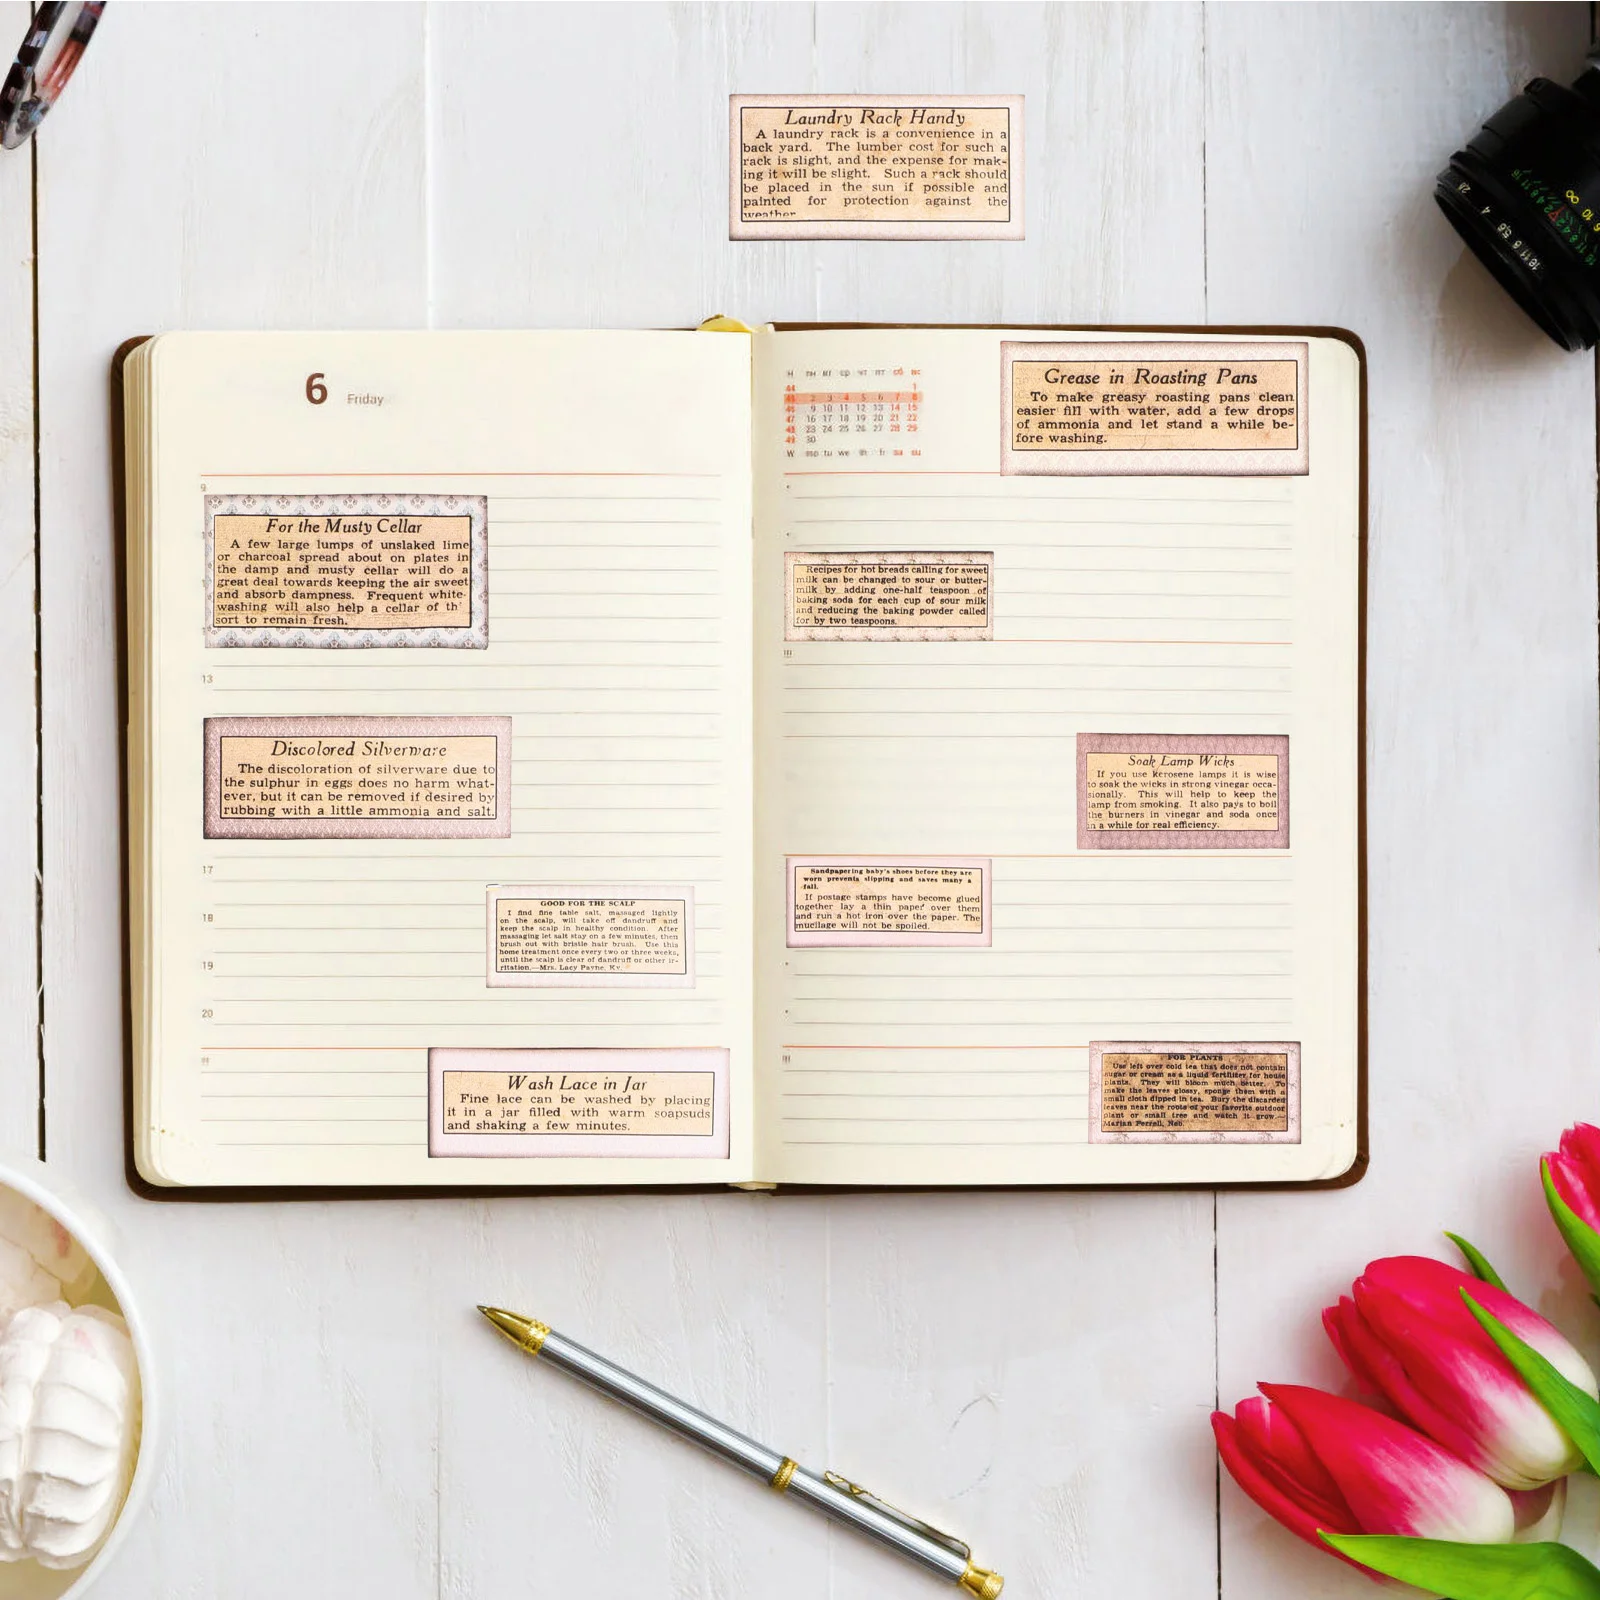 Laundry Rack Handy
A laundry rack is a convenience in a
back yard. The lumber cost for such a
rack is slight, and the expense for mak-
ing it will be slight. Such a rack should
be placed in the sun if possible and
painted for protection against the
weather.
6 Friday
9
For the Musty Cellar
A few large lumps of unslaked lime
or charcoal spread about on plates in
the damp and musty cellar will do a
great deal towards keeping the air sweet
and absorb dampness. Frequent white-
washing will also help a cellar of th'
sort to remain fresh.
13
Discolored Silverware
The discoloration of silverware due to
the sulphur in eggs does no harm what-
ever, but it can be removed if desired by
rubbing with a little ammonia and salt.
17
18
19
20
GOOD FOR THE SCALP
I find fine table salt, massaged lightly
on the scalp, will take off dandruff and
keep the scalp in healthy condition. After
massaging let salt stay on a few minutes, then
brush out with bristle hair brush. Use this
home treatment once every two or three weeks,
until the scalp is clear of dandruff or other ir-
ritation.—Mrs. Lacy Payne, Ky.
Wash Lace in Jar
Fine lace can be washed by placing
it in a jar filled with warm soapsuds
and shaking a few minutes.
Н пн вт ср чт пт сб вс
44 1
45 2 3 4 5 6 7 8
46 9 10 11 12 13 14 15
47 16 17 18 19 20 21 22
48 23 24 25 26 27 28 29
49 30
W mo tu we th fr sa su
Grease in Roasting Pans
To make greasy roasting pans clean
easier fill with water, add a few drops
of ammonia and let stand a while be-
fore washing.
Recipes for hot breads calling for sweet
milk can be changed to sour or butter-
milk by adding one-half teaspoon of
baking soda for each cup of sour milk
and reducing the baking powder called
for by two teaspoons.
Soak Lamp Wicks
If you use kerosene lamps it is wise
to soak the wicks in strong vinegar occa-
sionally. This will help to keep the
lamp from smoking. It also pays to boil
the burners in vinegar and soda once
in a while for real efficiency.
Sandpapering baby's shoes before they are
worn prevents slipping and saves many a
fall.
If postage stamps have become glued
together lay a thin paper over them
and run a hot iron over the paper. The
mucilage will not be spoiled.
FOR PLANTS
Use left over cold tea that does not contain
sugar or cream as a liquid fertilizer for house
plants. They will bloom much better. To
make the leaves glossy, sponge them with a
small cloth dipped in tea. Bury the discarded
leaves near the roots of your favorite outdoor
plant or small tree and watch it grow.—
Marian Perrell, Neb.